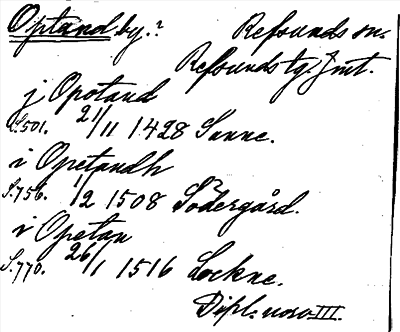 Optand by.? Refsunds sn.
Refsunds tg. Jmt.
j Opotand
S. 501. 21/11 1428 Sunne.
i Opetandh
S. 756. 1/2 1508 Södergård.
i Opetan
S. 770. 26/1 1516 Lockne.
Dipl. novo III.